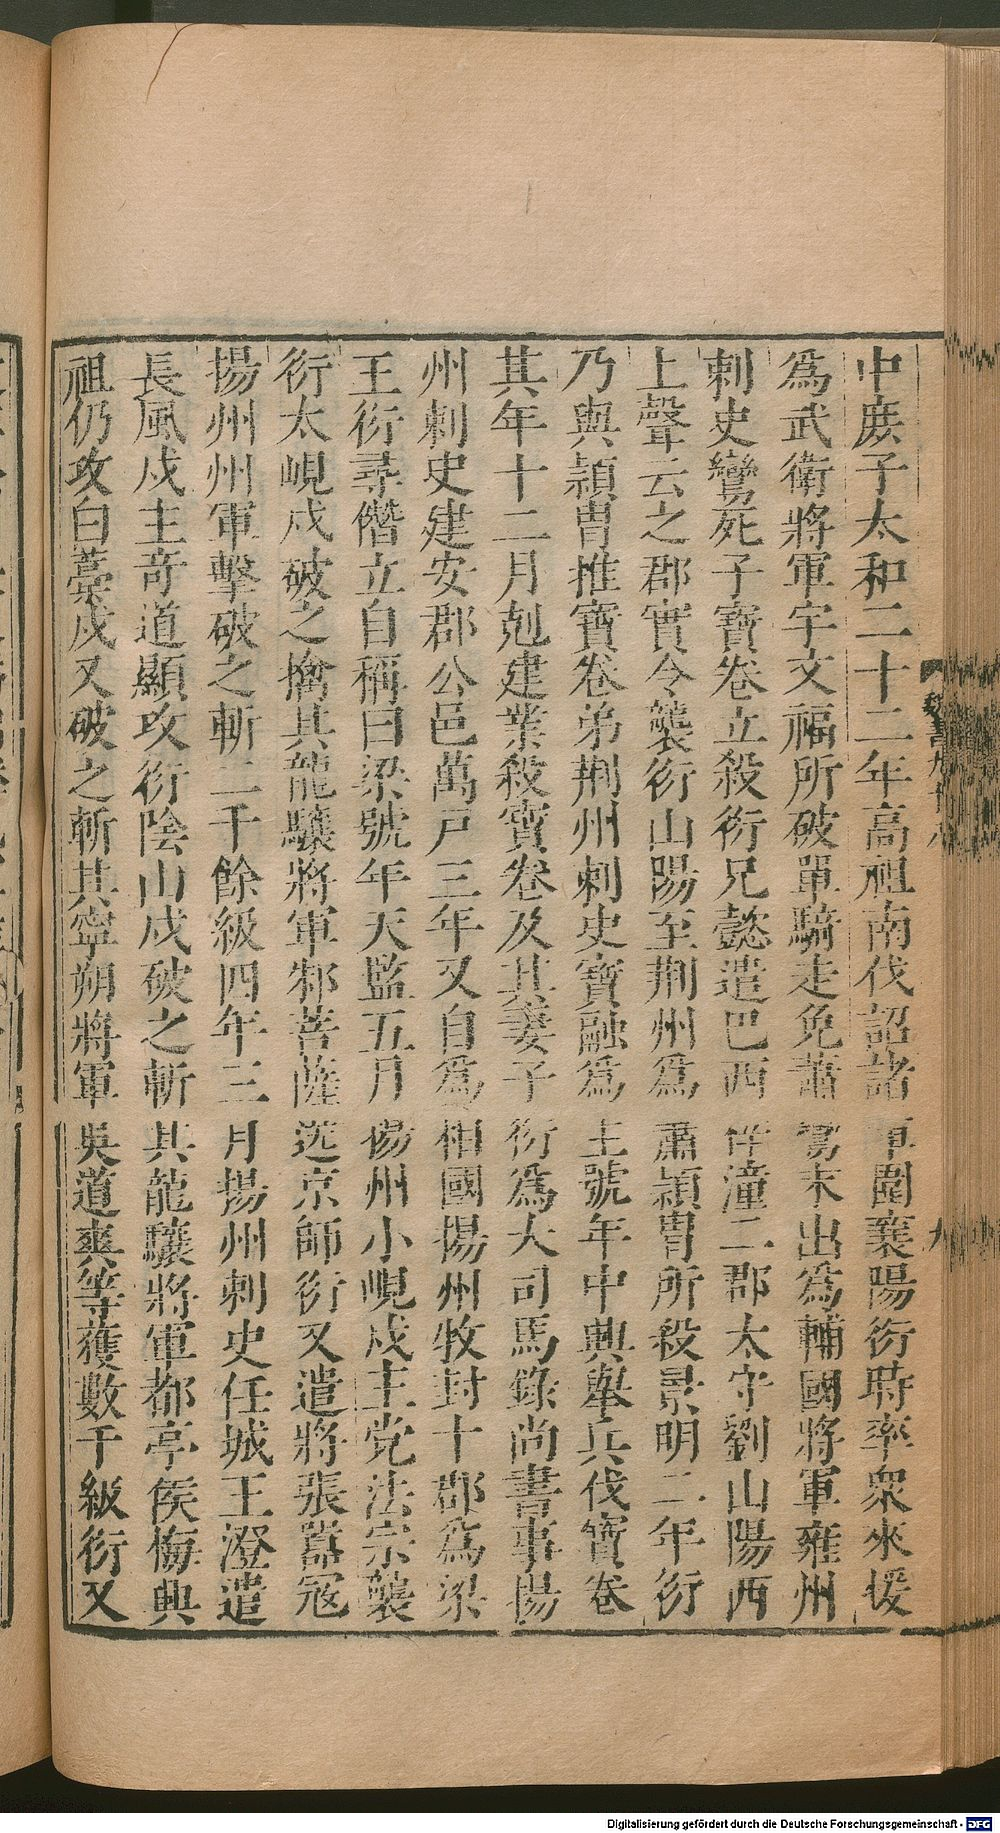 中庶子太和二十二年高祖南伐詔諸軍圍襄陽衍時率衆來援
爲武衛將軍宇文福所破單騎走免蕭鸞末出爲輔國將軍雍州
刺史鸞死子寶卷立殺衍兄懿遣巴西梓潼二郡太守劉山陽西
上聲云之郡實令襲衍山陽至荆州爲蕭穎胄所殺景明二年衍
乃與穎胄推寶卷弟荆州刺史寶融爲主號年中興舉兵伐寶卷
其年十二月剋建業殺寶卷及其妻子衍爲大司馬錄尚書事揚
州刺史建安郡公邑萬戸三年又自爲相國揚州牧封十郡爲梁
王衍尋僭立自稱曰梁號年天監五月揚州小峴戍主党法宗襲
衍太峴戍破之擒其龍驤將軍邾菩薩送京師衍又遣將張囂冦
揚州州軍擊破之斬二千餘級四年三月揚州刺史任城王澄遣
長風戍主奇道顯攻衍陰山戍破之斬其龍驤將軍都亭侯梅興
祖仍攻白藁戍又破之斬其寧朔將軍吳道爽等獲數千級衍又
魏書九十八
九
Digitalisierung gefördert durch die Deutsche Forschungsgemeinschaft - DFG